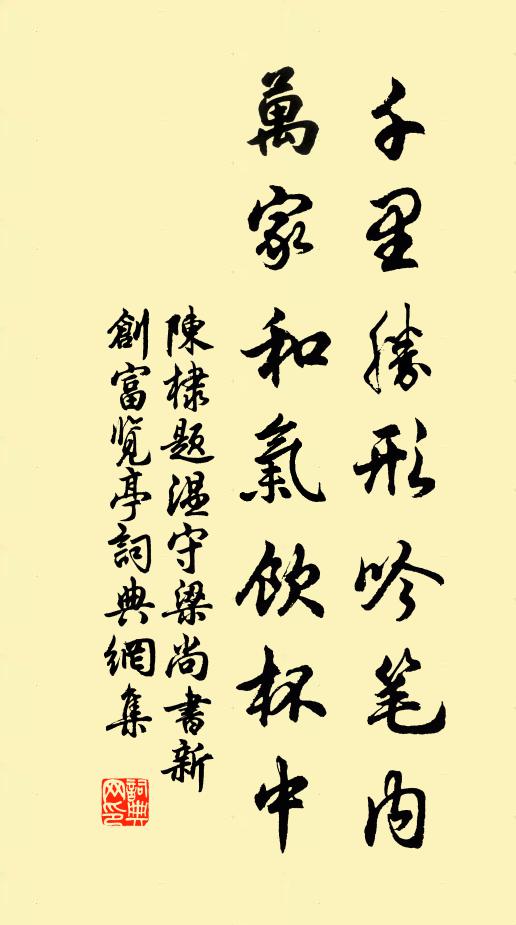 千里勝形吟笔内
萬家和氣飲杯中
陳棣题温守梁尚書新
創富覽亭詞典網集
詞典网印